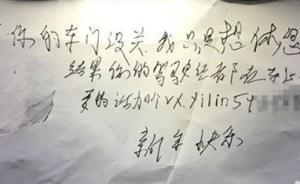 你的车门没关.我只是想体息
结果你的驾驶证都在车上
要的话加个VX.yilin54
新年快乐